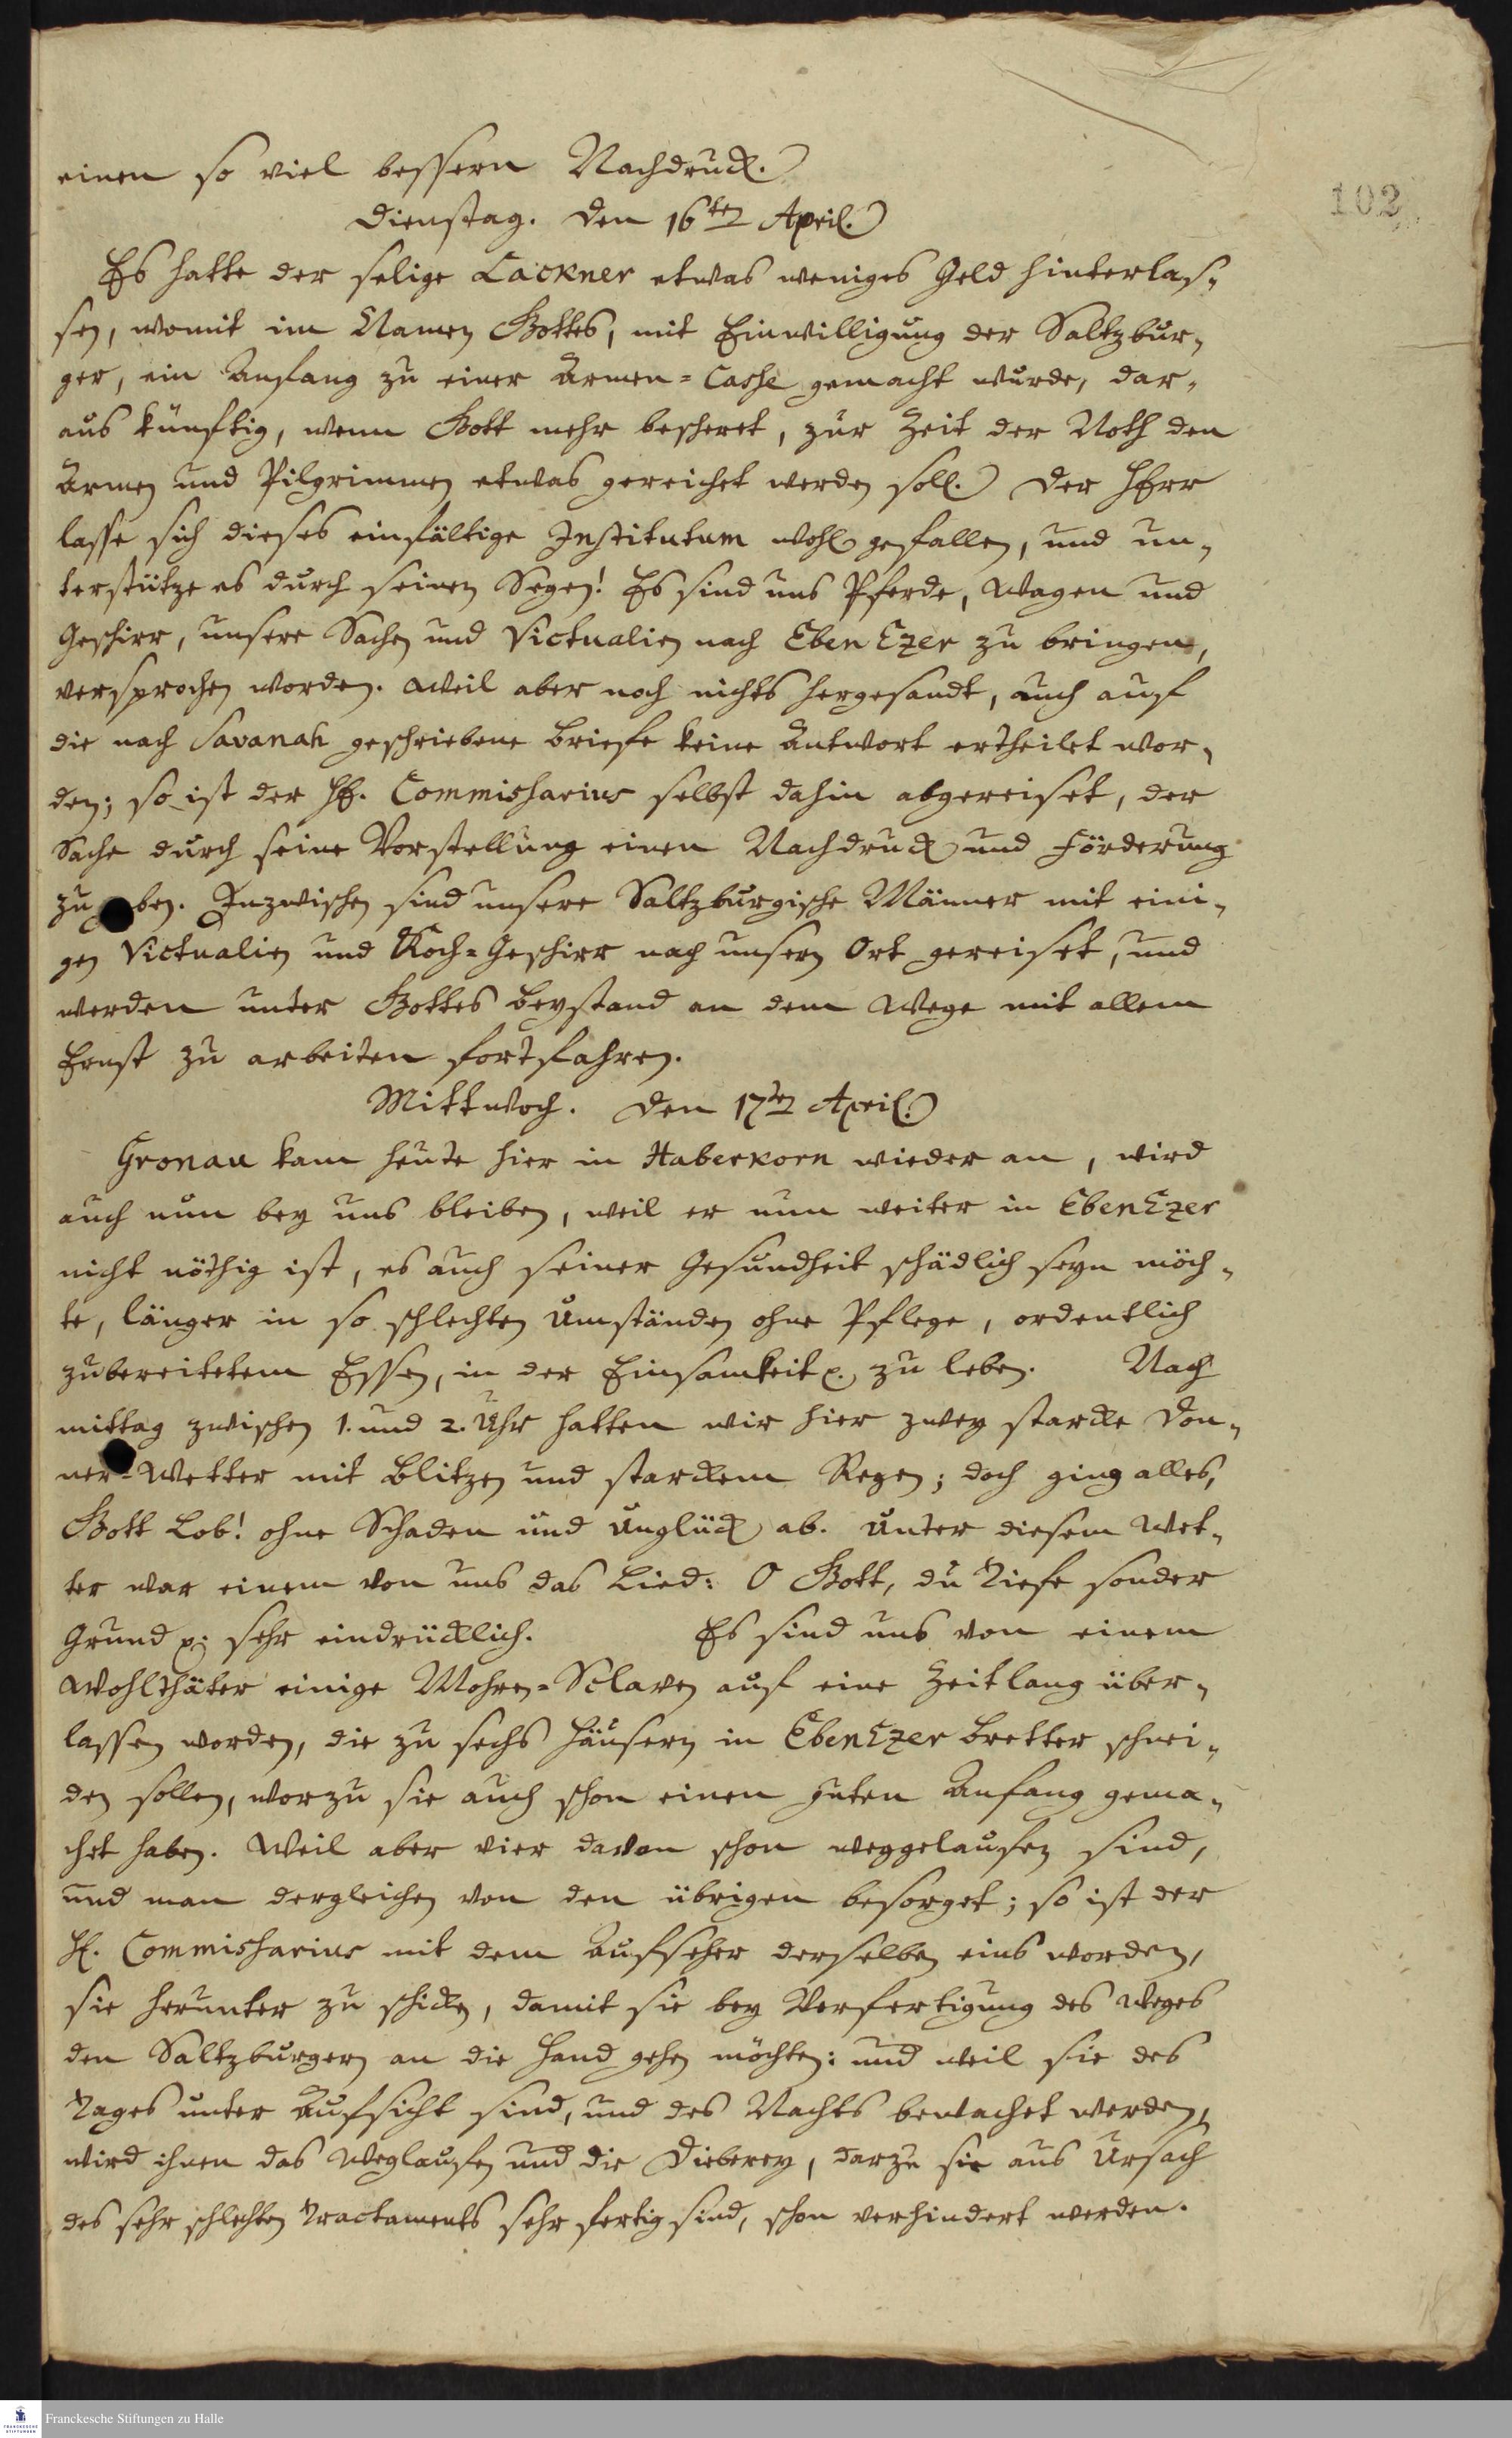 einen so viel bessern Nachdruck.
Dienstag. den 16ten April.
Es hatte der selige Lackner etwas weniges Geld hinterlas-
sen, womit im Namen Gottes, mit Einwilligung der Saltzbur-
ger, ein Anfang zu einer Armen-Casse gemacht wurde, dar-
aus künftig, wenn Gott mehr bescheret, zur Zeit der Noth den
Armen und Pilgrimmen etwas gereichet werden soll. Der HErr
lasse sich dieses einfältige Institutum wohl gefallen, und un-
terstütze es durch seinen Segen! Es sind uns Pferde, Wagen und
Geschirr, unsere Sachen und Victualien nach EbenEzer zu bringen,
versprochen worden. Weil aber noch nichts hergesandt, auch auf
die nach Savanah geschriebene Briefe keine Antwort ertheilet wor-
den; so ist der H. Commissarius selbst dahin abgereiset, der
Sache durch seine Vorstellung einen Nachdruck und Förderung
zu g ben. Inzwischen sind unsere Saltzburgische Männer mit eini-
gen Victualien und Koch-Geschirr nach unsern Ort gereiset, und
werden unter Gottes Beystand an dem Wege mit allem
Ernst zu arbeiten fortfahren.
Mittwoch. den 17ten April.
Gronau kam heute hier in Haberkorn wieder an, wird
auch nun bey uns bleiben, weil er nun weiter in EbenEzer
nicht nöthig ist, es auch seiner Gesundheit schädlich seyn möch-
te, länger in so schlechten Umständen ohne Pflege, ordentlich
zubereitetem Essen, in der Einsamkeit p. zu leben. Nach
mittag zwischen 1. und 2. Uhr hatten wir hier zwey starcke Don-
ner-Wetter mit Blitzen und starckem Regen; doch ging alles,
Gott Lob! ohne Schaden und Unglück ab. Unter diesem Wet-
ter war einem von uns das Lied: O Gott, du Tiefe sonder
Grund p. sehr eindrücklich. Es sind uns von einem
Wohlthäter einige Mohren-Sclaven auf eine Zeitlang über-
lassen worden, die zu sechs Häusern in EbenEzer Bretter schnei-
den sollen, worzu sie auch schon einen guten Anfang gema-
chet haben. Weil aber vier davon schon weggelaufen sind,
und man dergleichen von den übrigen besorget; so ist der
H. Commissarius mit dem Aufseher derselben eins worden,
sie herunter zu schicken, damit sie bey Verfertigung des Weges
den Saltzburgern an die Hand gehen möchten: und weil sie des
Tages unter Aufsicht sind, und des Nachts bewachet werden,
wird ihnen das Weglaufen und die Dieberey, darzu sie aus Ursach
des sehr schlechten Tractaments sehr fertig sind, schon verhindert werden.
102
Franckesche Stiftungen zu Halle